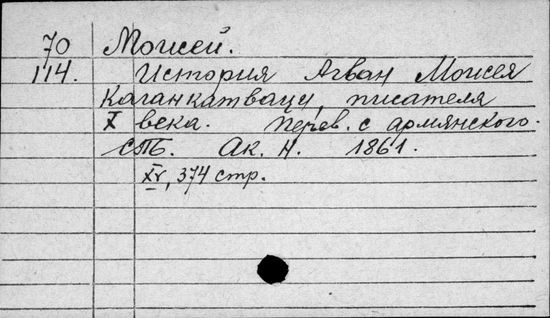 70 Моисей.
114. История Агван Моисея
Каганкатваци, писателя
X века. Перев. с армянского.
СПБ. Ак. Н. 1861.
XV, 374 стр.